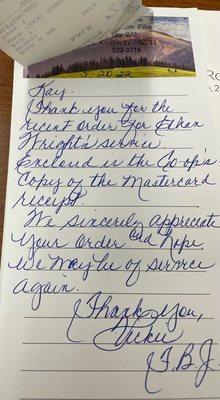 Pike
272
Kentucky 42231
522-3719
5-20-22
Kay.
Thank you for the
recent order for Ethan
Wright's service.
Encloud is the Co-op's
Copy of the Mastercard
receipt.
We sincerely appreciate
your order and hope
we maybe of service
again.
Thank you,
Vicki